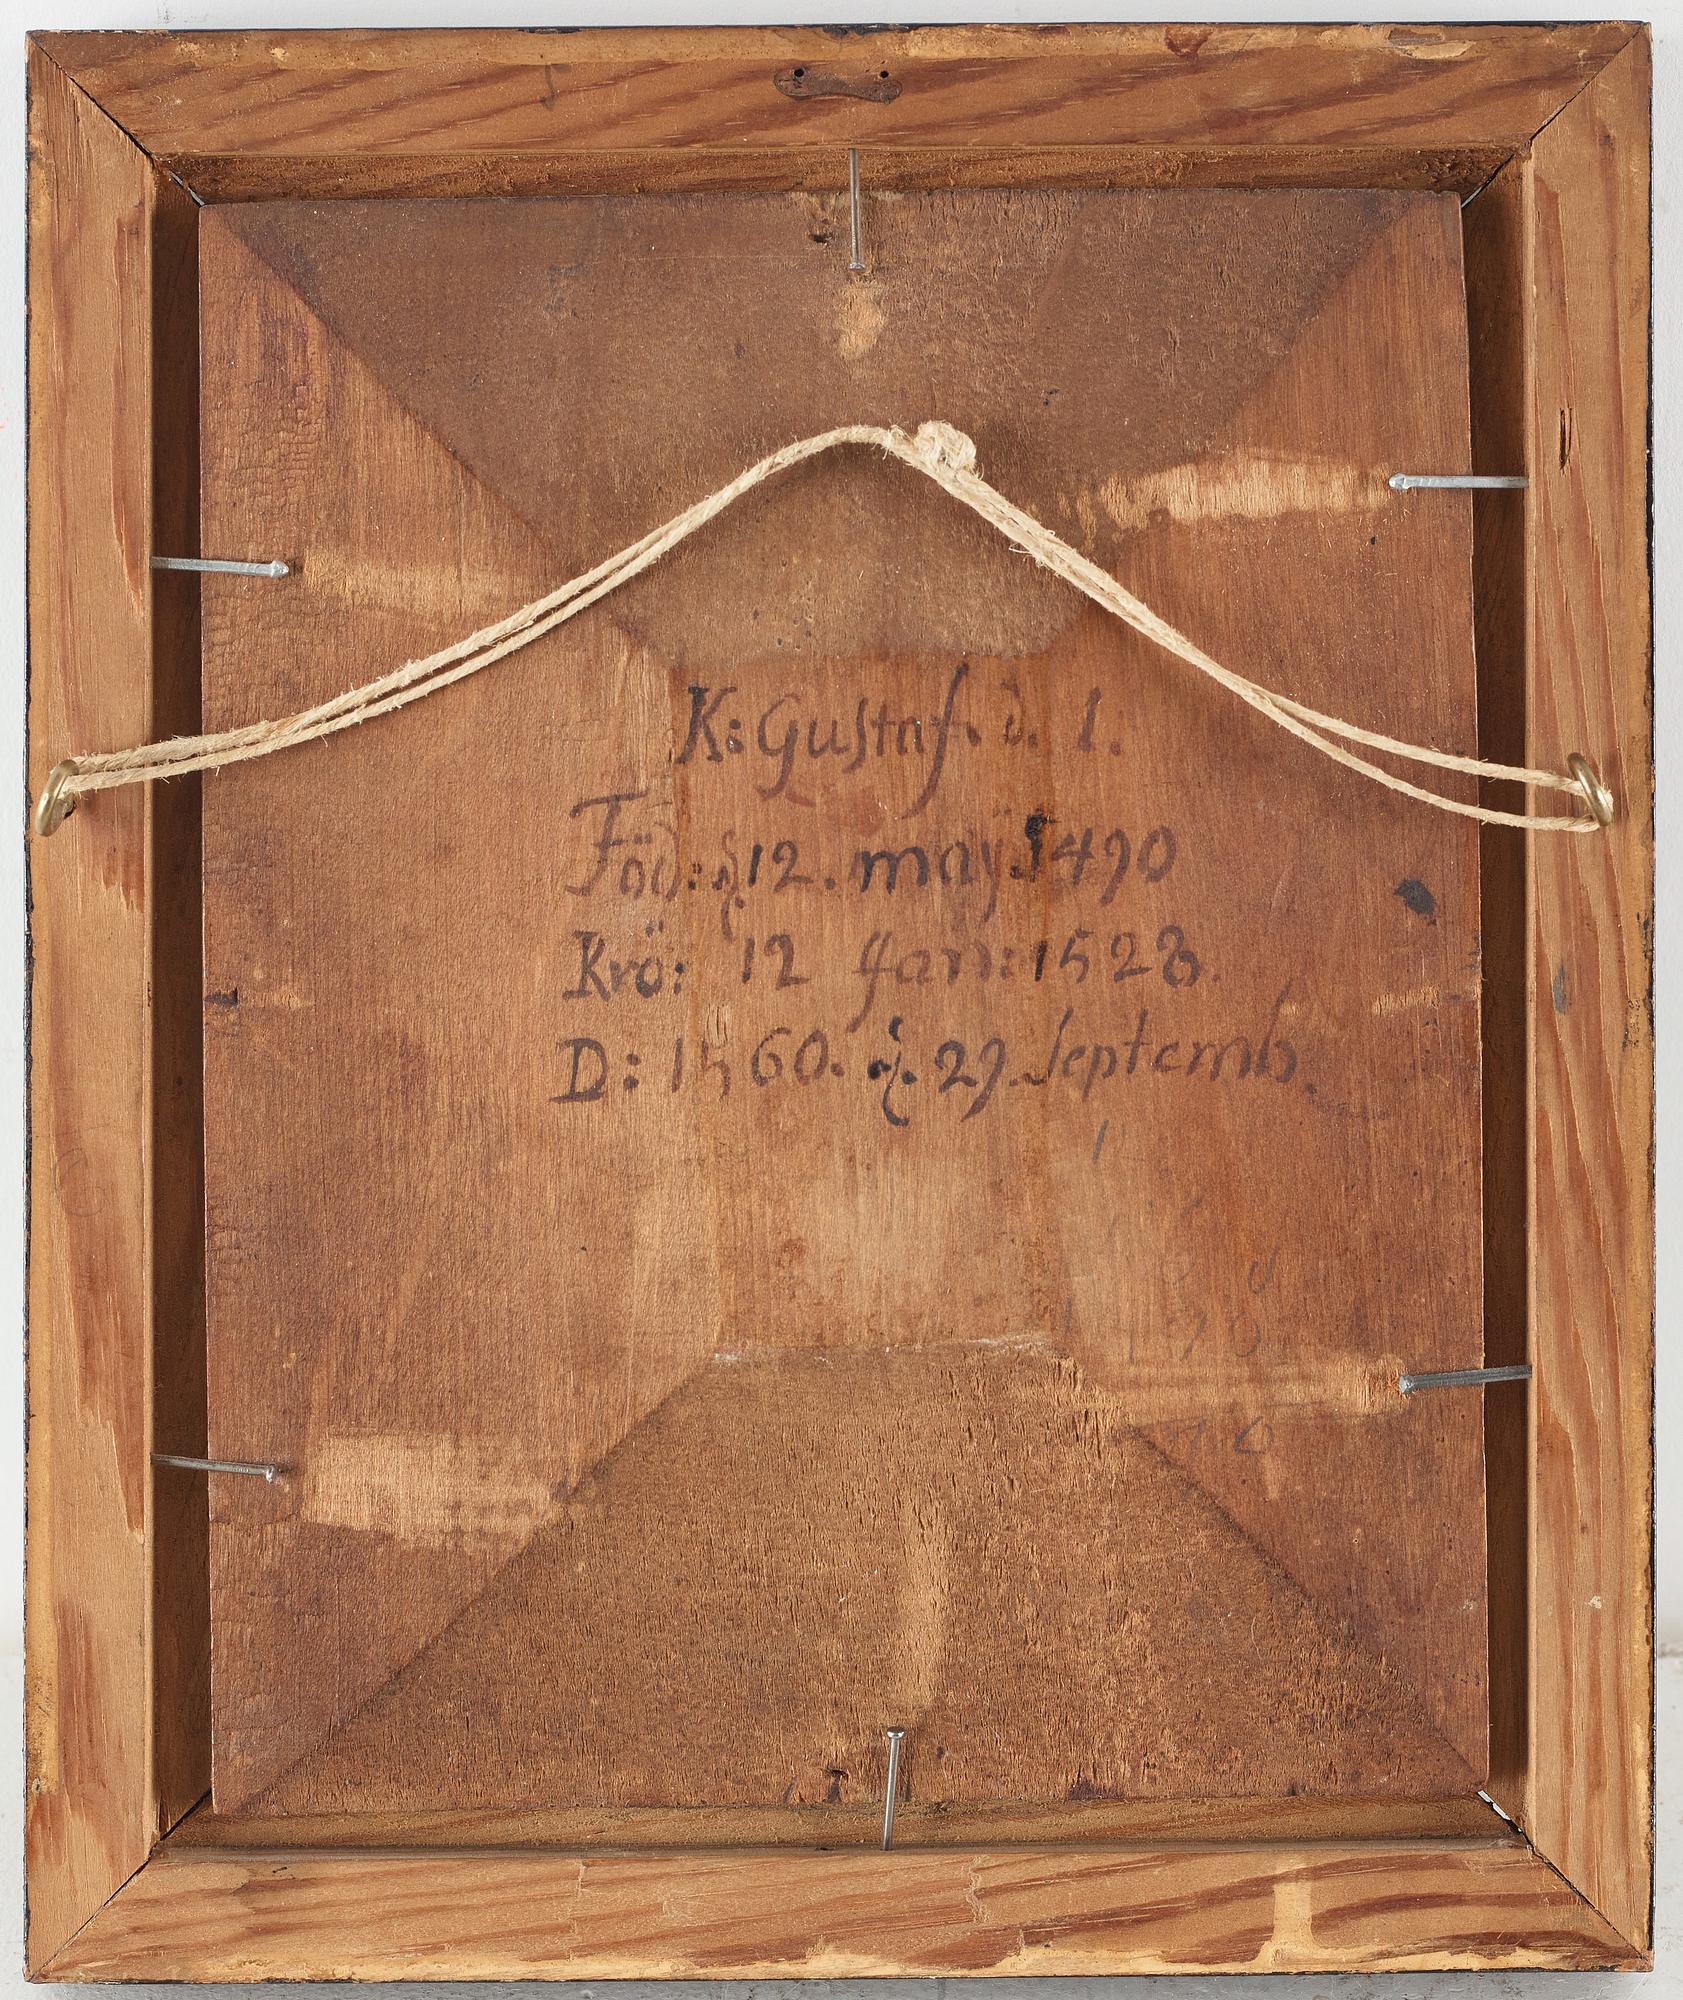 K: Gustaf. d. 1.
Föd: d 12. may 1490
Krö: 12 Jan: 1528.
D: 1560. d. 29. Septemb.
1490